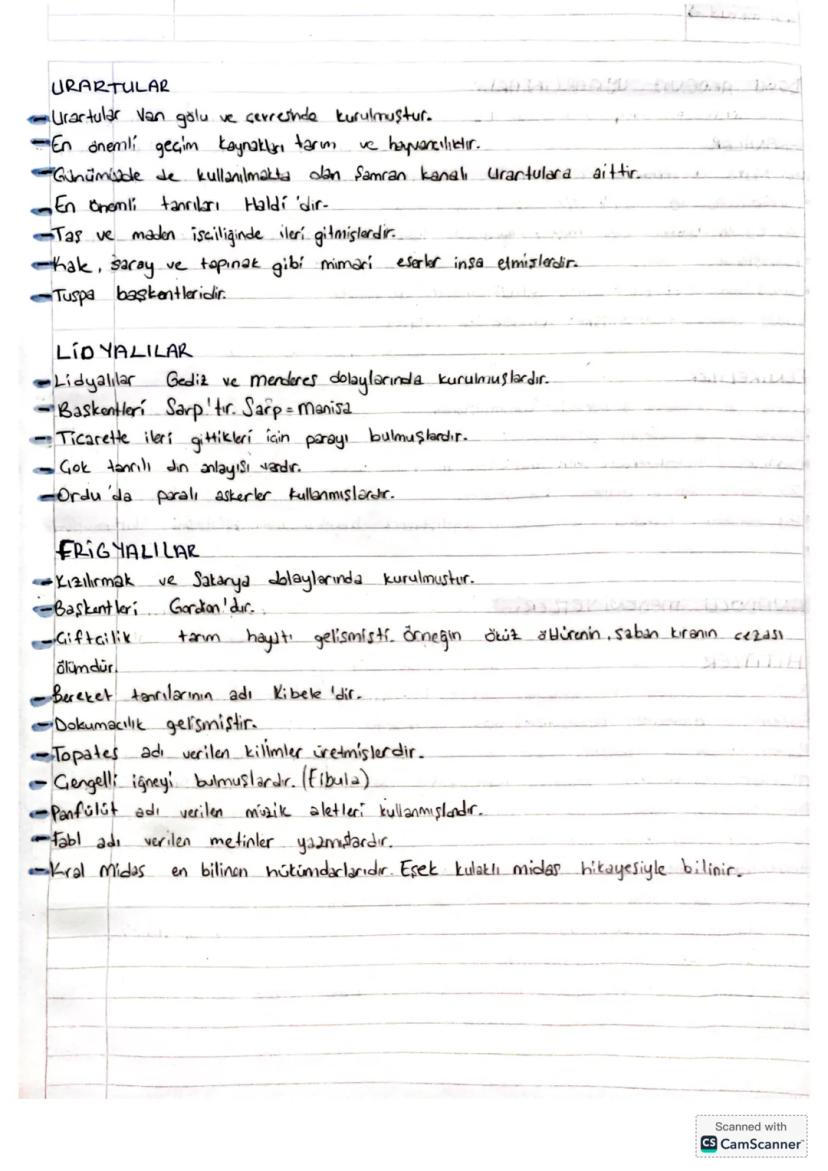 URARTULAR
- Urartular Van gölu ve çevresinde kurulmuştur.
- En önemli geçim kaynakları tarım ve hayvancılıktır.
- Günümüzde de kullanılmakta olan Şamran kanalı Urartulara aittir.
- En önemli tanrıları Haldi'dir.
- Taş ve maden isciliğinde ileri gitmişlerdir.
- Kale, saray ve tapınak gibi mimari eserler insa etmişlerdir.
- Tuspa başkentleridir.
LİDYALILAR
- Lidyalılar Gediz ve menderes dolaylarında kurulmuşlardır.
- Başkentleri Sarp'tır. Sarp = Manisa
- Ticarette ileri gittikleri için parayı bulmuşlardır.
- Çok tanrılı din anlayışı vardır.
- Ordu'da paralı askerler kullanmışlardır.
FRİGYALILAR
- Kızılırmak ve Sakarya dolaylarında kurulmuştur.
- Başkentleri Gordon'dur.
- Çiftcilik tarım hayatı gelişmişti. Örneğin öküz öldürenin, saban kıranın cezası
ölümdür.
- Bereket tanrılarının adı Kibele'dir.
- Dokumacılık gelişmiştir.
- Topates adı verilen kilimler üretmişlerdir.
- Çengelli iğneyi bulmuşlardır. (Fibula)
- Panfülüt adı verilen müzik aletleri kullanmışlardır.
- Fabl adı verilen metinler yazmışlardır.
- Kral Midas en bilinen hükümdarlarıdır. Eşek kulaklı midas hikayesiyle bilinir.
Scanned with
CS CamScanner